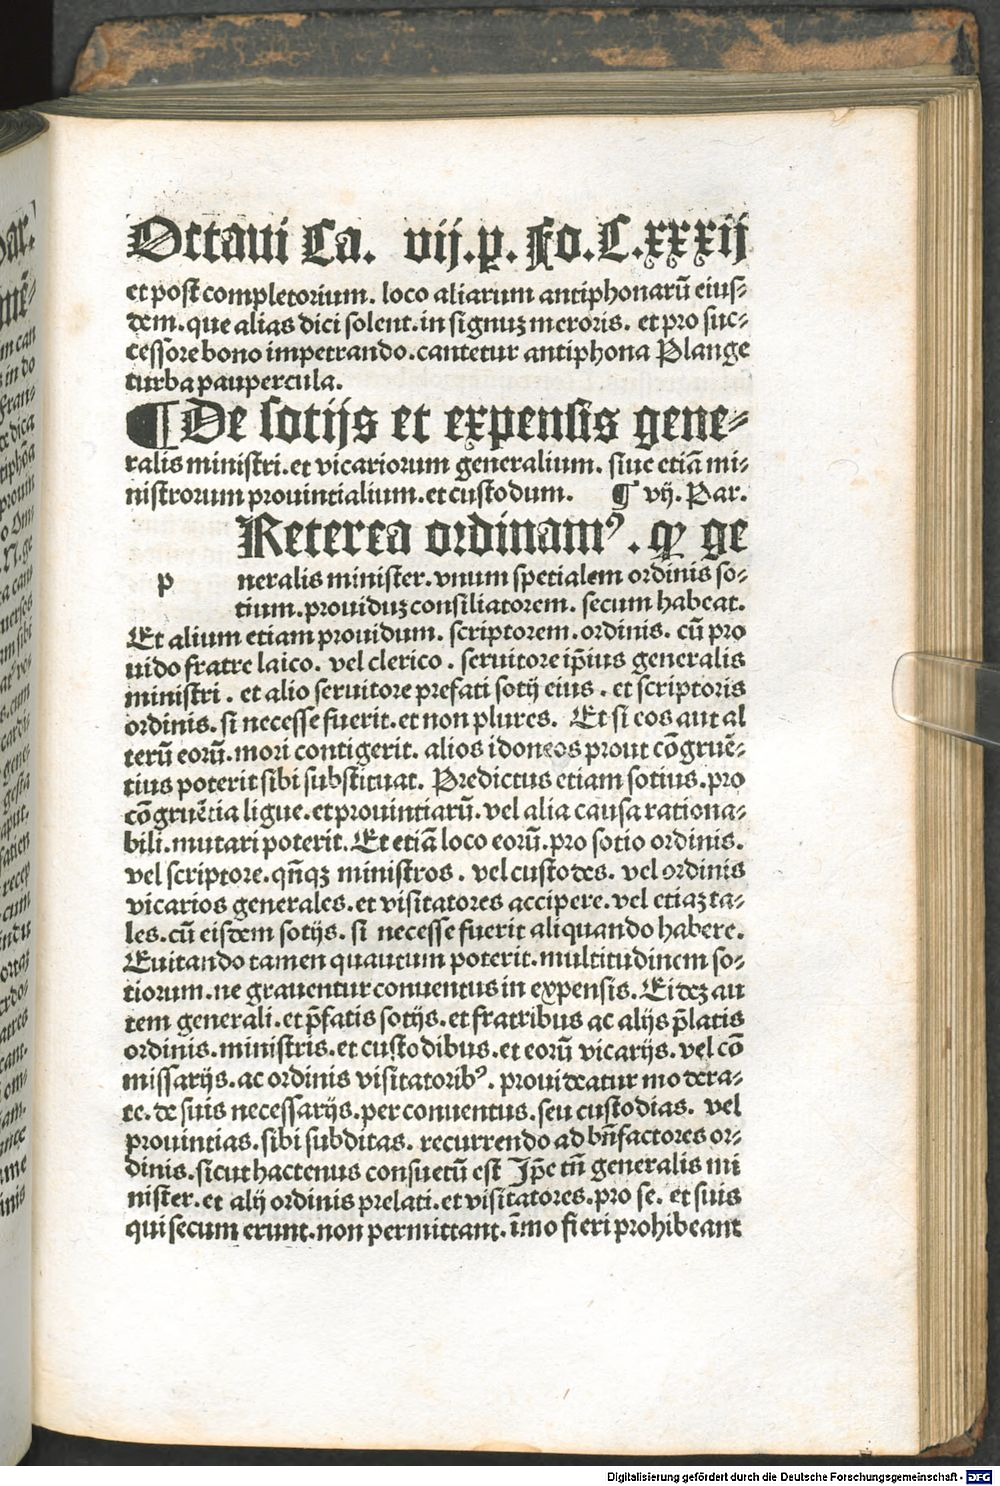 Octaui Ca. vij.p. Fo. C.xxxij
et post completorium. loco aliarum antiphonarũ eius⸗
dem. que alias dici solent. in signuꝫ meroris. et pro suc⸗
cessore bono impetrando. cantetur antiphona Plange
turba paupercula.
¶ De sotijs et expensis gene⸗
ralis ministri. et vicariorum generalium. siue etiã mi⸗
nistrorum prouintialium. et custodum. ¶ vij. Par.
Reterea ordinamꝰ. ꝙ ge
p neralis minister. vnum spetialem ordinis so⸗
tium. prouiduꝫ consiliatorem. secum habeat.
Et alium etiam prouidum. scriptorem. ordinis. cũ pro
uido fratre laico. vel clerico. seruitore ip̃ius generalis
ministri. et alio seruitore prefati sotij eius. et scriptoris
ordinis. si necesse fuerit. et non plures. Et si eos aut al
terũ eorũ. mori contigerit. alios idoneos prout cõgruẽ⸗
tius poterit sibi substituat. Predictus etiam sotius. pro
cõgruẽtia ligue. et prouintiarũ. vel alia causa rationa⸗
bili. mutari poterit. Et etiã loco eorũ. pro sotio ordinis.
vel scriptore. qñqꝫ ministros. vel custodes. vel ordinis
vicarios generales. et visitatores accipere. vel etiaꝫ ta⸗
les. cũ eisdem sotijs. si necesse fuerit aliquando habere.
Euitando tamen quautum poterit. multitudinem so⸗
tiorum. ne grauentur conuentus in expensis. Eideꝫ au
tem generali. et p̃fatis sotijs. et fratribus ac alijs p̃latis
ordinis. ministris. et custodibus. et eorũ vicarijs. vel cõ
missarijs. ac ordinis visitatoribꝰ. prouideatur modera⸗
te. de suis necessarijs. per conuentus. seu custodias. vel
prouintias. sibi subditas. recurrendo ad bñfactores or⸗
dinis. sicut hactenus consuetũ est Ip̃e tñ generalis mi
nister. et alij ordinis prelati. et visitatores. pro se. et suis
qui secum erunt. non permittant. ĩmo fieri prohibeant
Digitalisierung gefördert durch die Deutsche Forschungsgemeinschaft - DFG